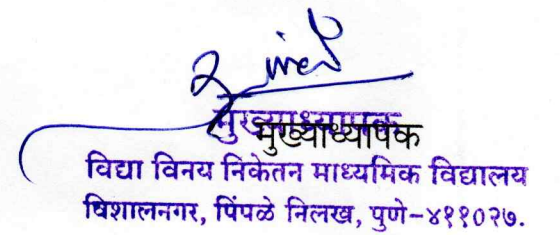 मुख्याध्यापक
मुख्याध्यापक
विद्या विनय निकेतन माध्यमिक विद्यालय
विशालनगर, पिंपळे निलख, पुणे-४११०२७.